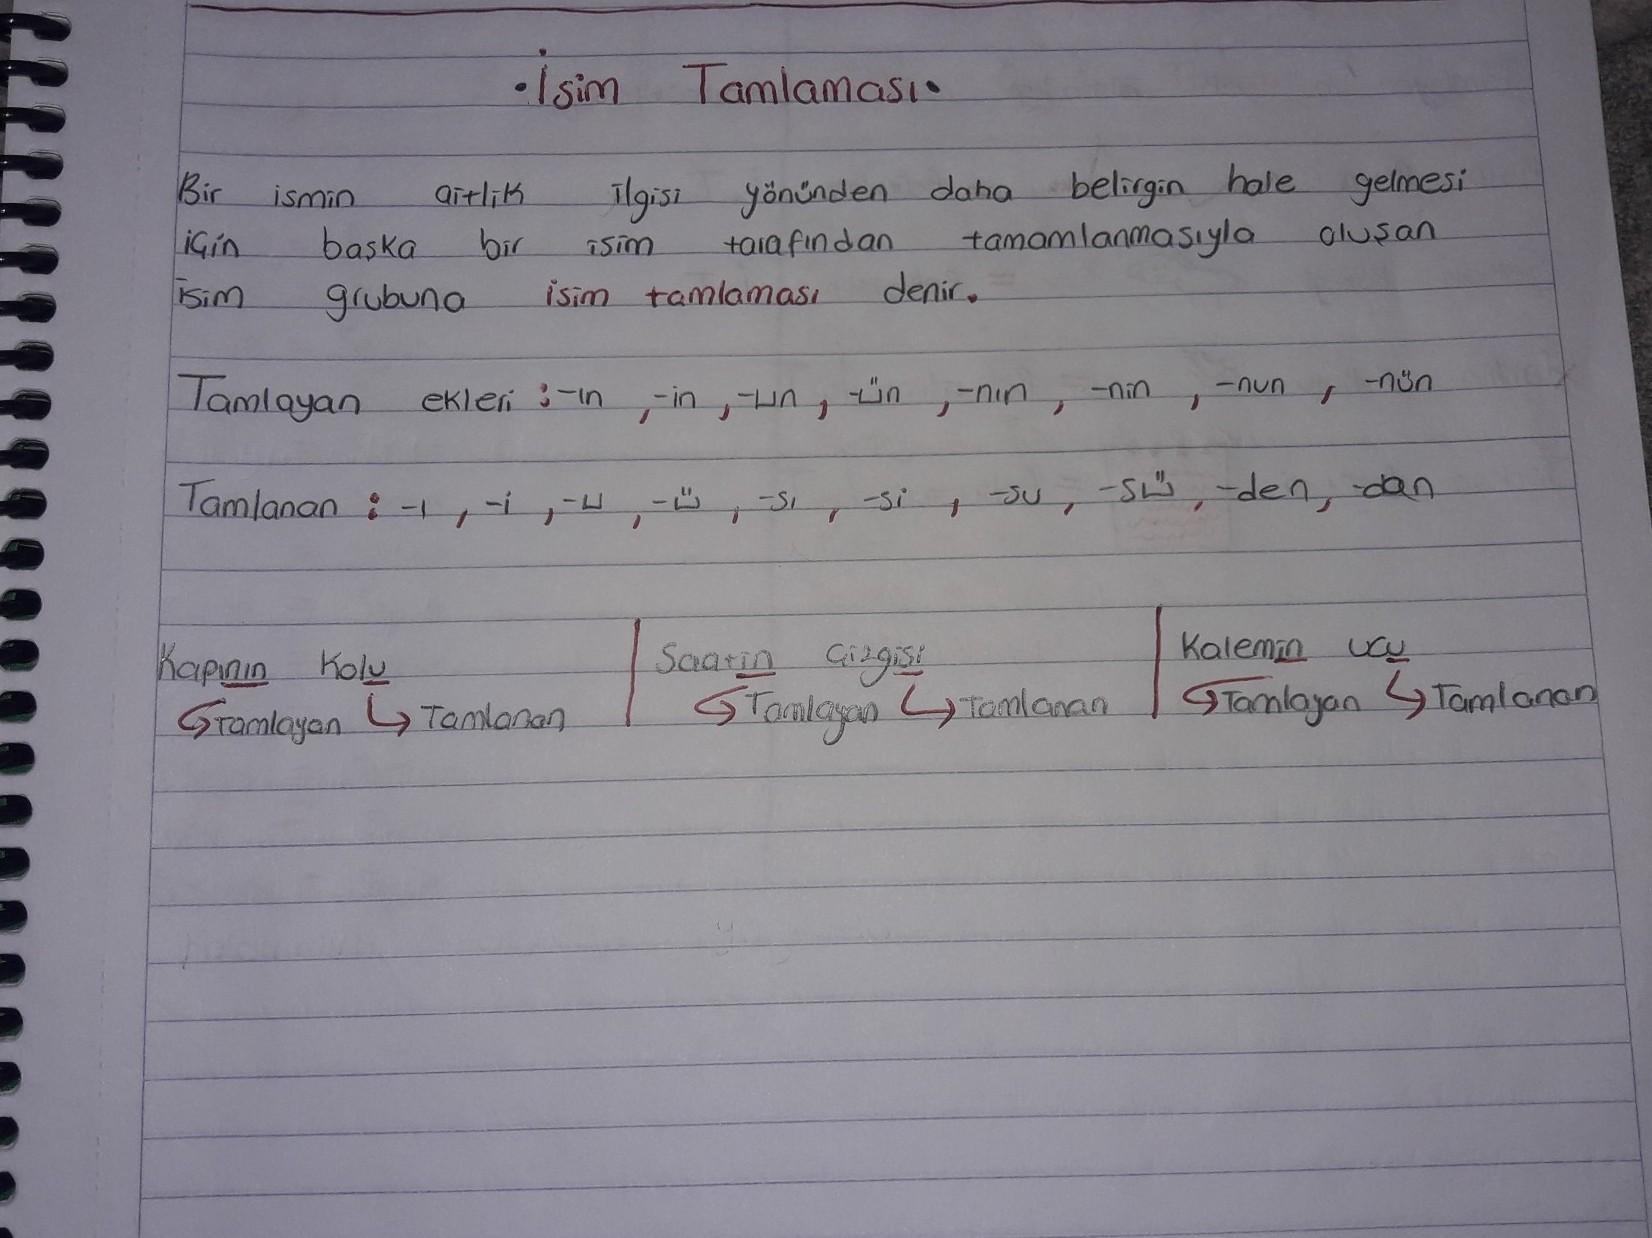 •İsim Tamlaması•
Bir ismin aitlik ilgisi yönünden daha belirgin hale gelmesi
için başka bir isim tarafından tamamlanmasıyla oluşan
isim grubuna isim tamlaması denir.
Tamlayan ekleri : -ın, -in, -un, -ün, -nın, -nin, -nun, -nün
Tamlanan : -ı, -i, -u, -ü, -sı, -si, -su, -sü, -den, -dan
Kapının Kolu | Saatin Çizgisi | Kalemin ucu
Tamlayan Tamlanan | Tamlayan Tamlanan | Tamlayan Tamlanan